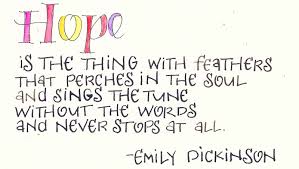 Hope
is the thing with feathers
that perches in the soul
and sings the tune
without the words
and never stops at all.
-Emily Dickinson